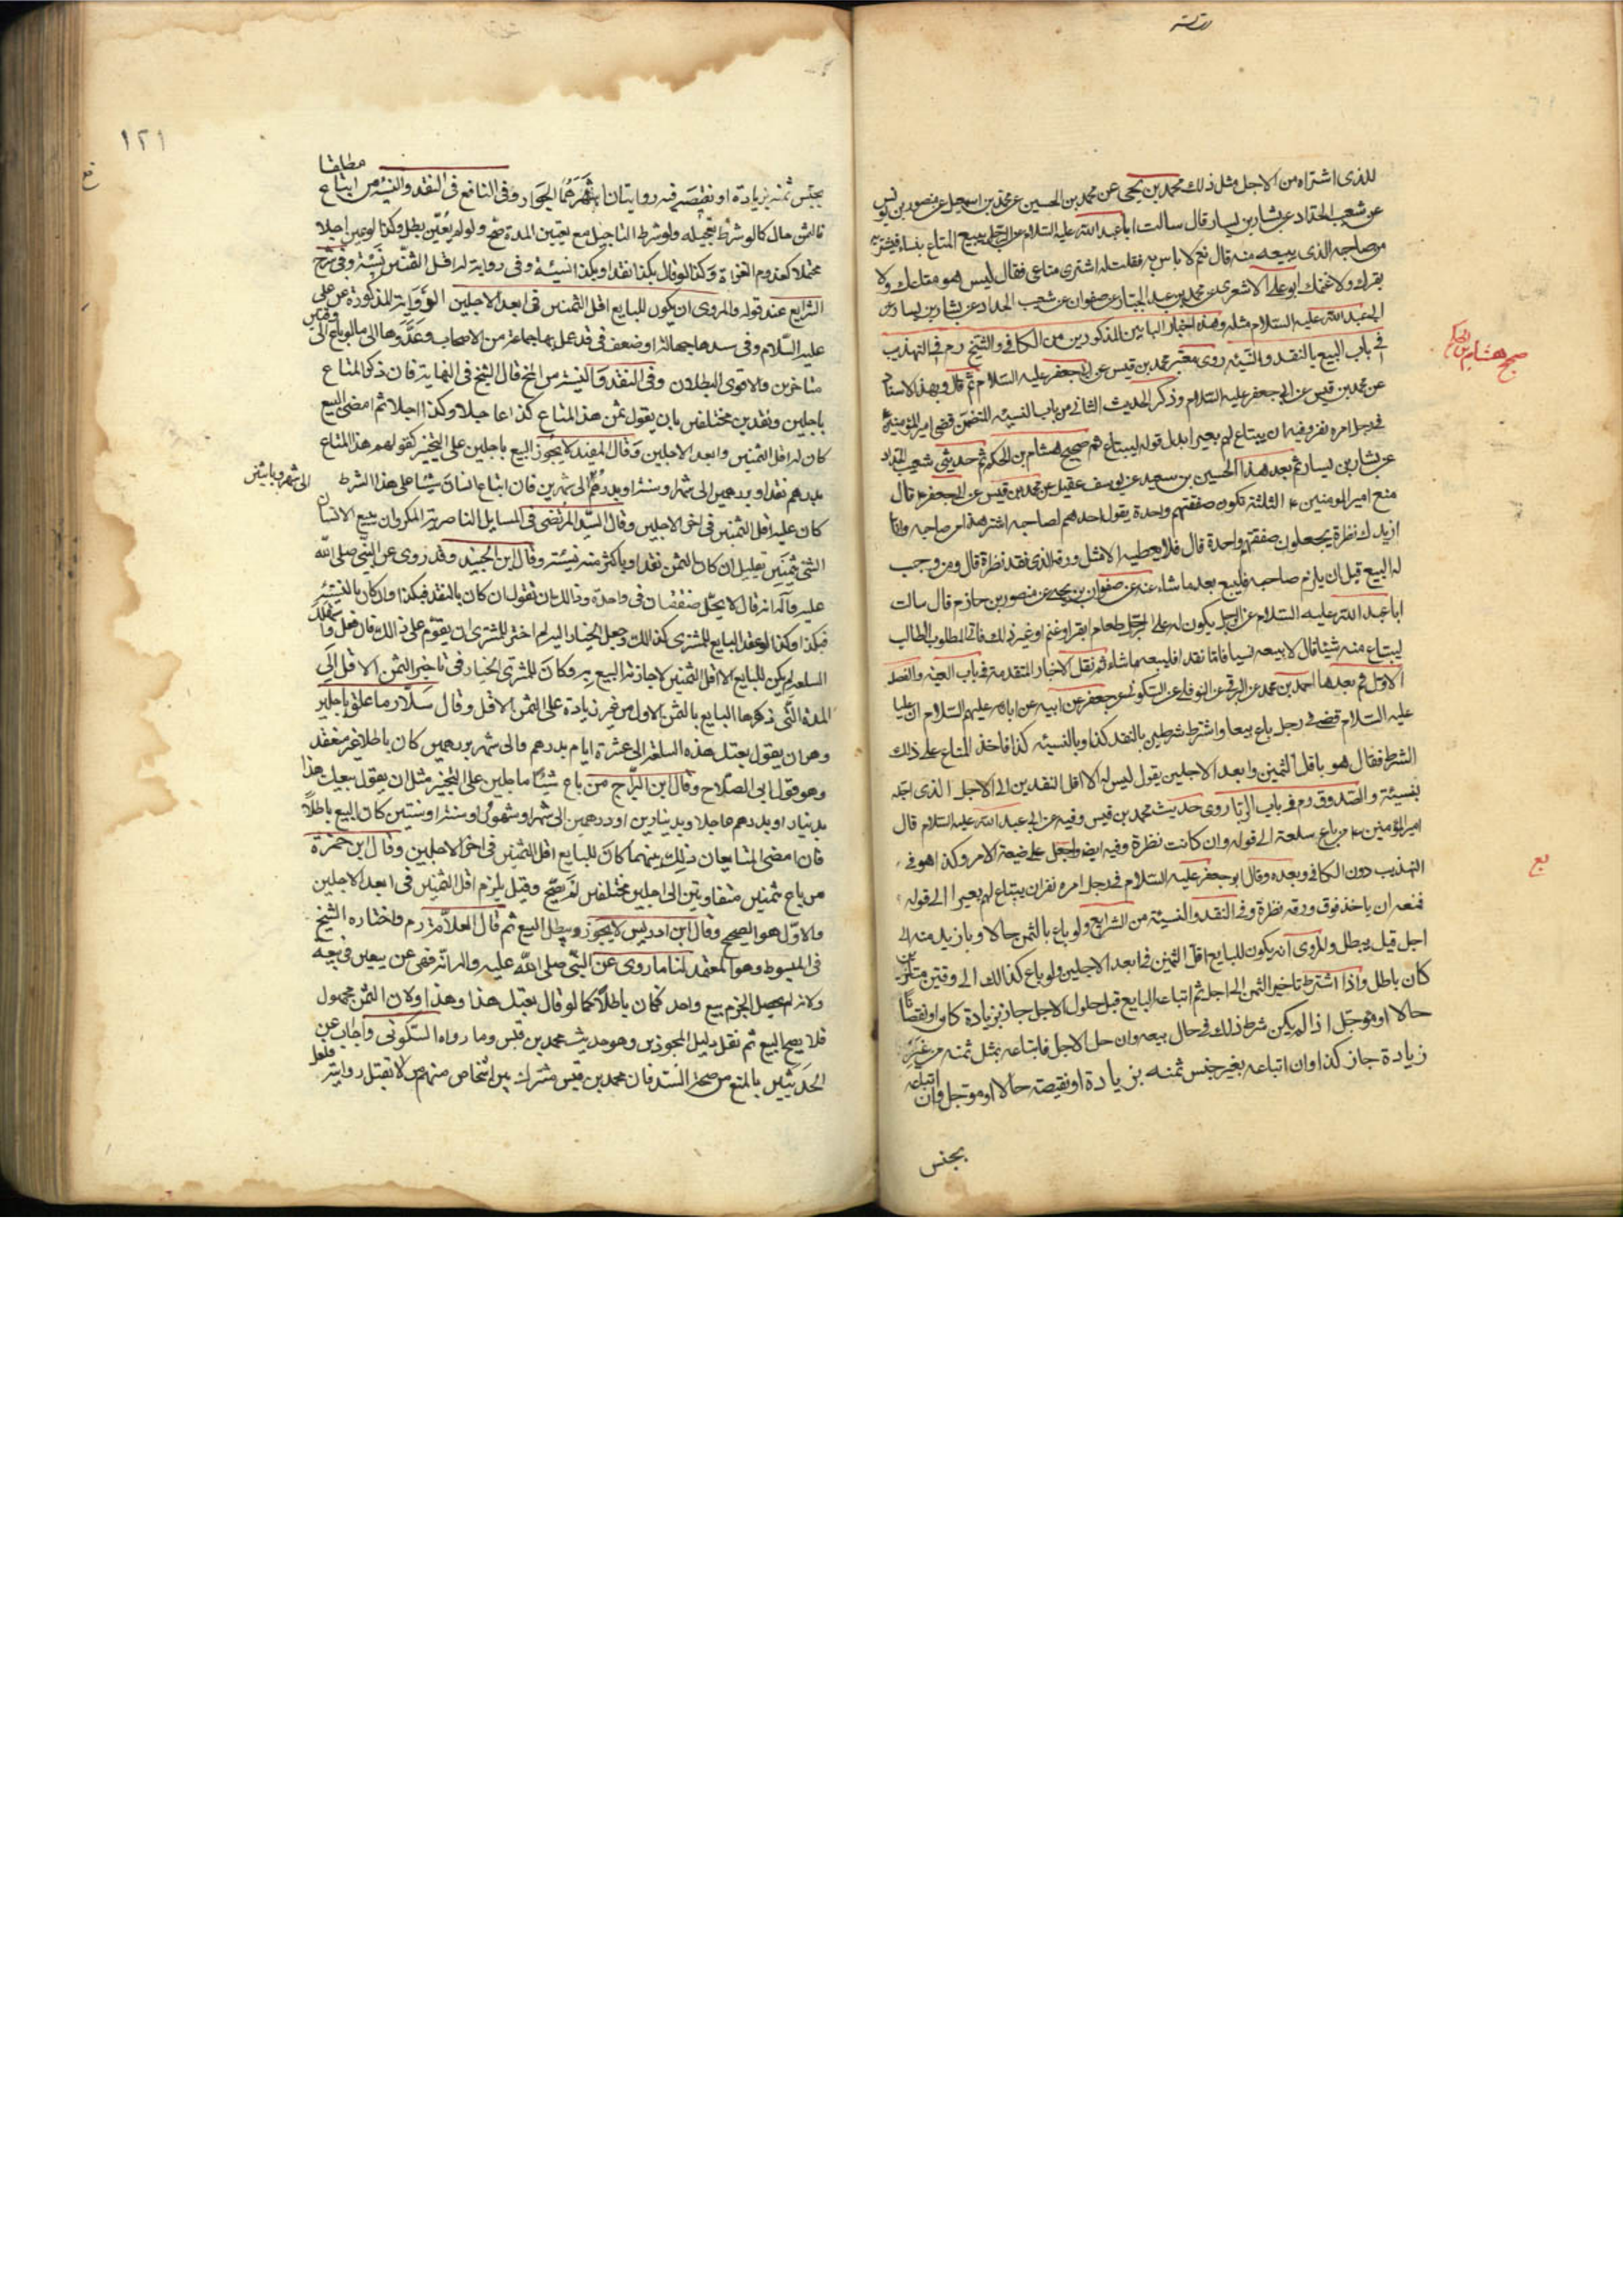 للذی اشتراه من الاجل مثل ذلك محمد بن یحیی عن محمد بن الحسین عن محمد بن اسمعیل عن منصور بن یونس
عن شعیب الحداد عن بشار بن یسار قال سالت اباعبد الله علیه السلام عن الرجل یبیع المتاع بنساء فیشتریه
من صاحبه الذی یبیعه منه قال نعم لا باس به فقلت له اشتری متاعی فقال لیس هو متاعك ولا
بقرك ولا غنمك ابو علی الاشعری عن محمد بن عبد الجبار عن صفوان عن شعیب الحداد عن بشار بن یسار عن
ابی عبد الله علیه السلام مثله وهذه اخبار البابین المذکورین من الکافی والشیخ ره فی التهذیب
فی باب البیع بالنقد والنسیئه روی معتبر محمد بن قیس عن ابی جعفر علیه السلام ثم قال وبهذا الاسناد
عن محمد بن قیس عن ابی جعفر علیه السلام وذکر الحدیث الثانی من باب النسیئه المتضمن قضی امیر المؤمنین ع
فی رجل امره نفر وفیه ان یبتاع لهم بعیرا بدل قوله لیبتاع ثم صحیح هشام بن الحکم ثم حدیثی شعیب الحداد
عن بشار بن یسار ثم بعد هذا الحسین بن سعید عن یوسف عقیل عن محمد بن قیس عن ابی جعفر ع قال
منع امیر المومنین ع الثلثة تکون صفقتهم واحدة یقول احدهم لصاحبه اشتر هذا من صاحبه وانا
ازیدك نظرة یجعلون صفقتهم واحدة قال فلا یعطیه الا مثل ورقه الذی نقد نظرة قال ومن وجب
له البیع قبل ان یلزم صاحبه فلیبع بعد ما شاء عنه عن صفوان بن یحیی عن منصور بن حازم قال سالت
اباعبد الله علیه السلام عن الرجل یکون له علی الرجل طعام او بقر او غنم او غیر ذلك فاتی المطلوب الطالب
لیبتاع منه شیئا قال لا یبیعه نسیا فاما نقدا فلیبعه ما شاء ثم نقل الاخبار المتقدمة فی باب العینه والفصل
الاول ثم بعدها احمد بن محمد عن البرقی عن النوفلی عن السکونی عن جعفر عن ابیه عن ابائه علیهم السلام ان علیا
علیه السلام قضی فی رجل باع بیعا واشترط شرطین بالنقد کذا وبالنسیئه کذا فاخذ المتاع علی ذلك
الشرط فقال هو باقل الثمنین وابعد الاجلین یقول لیس له الا اقل النقدین الی الاجل الذی اجله
بنسیئة والصدوق ره فی باب الربا روی حدیث محمد بن قیس وفیه عن ابی عبد الله علیه السلام قال
امیر المؤمنین ع من باع سلعة الی قوله وان کانت نظرة وفیه ایضا ولجعل علی ضیعة الامر وکذا هو فی
التهذیب دون الکافی وبعده وقال ابو جعفر علیه السلام فی رجل امره نفر ان یبتاع لهم بعیرا الی قوله
فمنعه ان یاخذ فوق ورقه نظرة وفی النقد والنسیئة من الشرایع ولو باع بالثمن حالا وبازید منه الی
اجل قیل یبطل والمروی انه یکون للبایع اقل الثمنین فی ابعد الاجلین ولو باع کذلك الی وقتین متاخرین
کان باطل واذا اشترط تاخیر الثمن الی اجل ثم ابتاعه البایع قبل حلول الاجل جاز بزیادة کان او نقصانا
حالا او موجل اذا لم یکن شرط ذلك فی حال بیعه وان حل الاجل فابتاعه بمثل ثمنه من غیر
زیادة جاز کذا وان ابتاعه بغیر جنس ثمنه بزیادة او نقیصة حالا او موجل وان ابتاعه
بجنس
صح هشام بن الحکم
١٢١
بجنس ثمنه بزیادة او نقیصة فیه روایتان اشهرهما الجواز وفی النافع فی النقد والنسیئه من ابتاع مطلقا
فالثمن حال کالو شرط تعجیله ولو شرط التاجیل مع تعیین المدة صح ولو لم یعین بطل وکذا لو عین اجلا
محتملا کقدوم الغزاة وکذا لو قال بکذا نقدا وبکذا نسیئة وفی روایة له اقل الثمنین نسیئة وفی شرح
الشرایع عند قوله والمروی ان یکون للبایع اقل الثمنین فی ابعد الاجلین الروایة المذکورة عن علی
علیه السلام وفی سندها جهالة او ضعف وقد عمل بها جماعة من الاصحاب وعدوها الی ما لو باع الی وقتین
متاخرین والاقوی البطلان وفی النقد والنسیئة من المخ قال الشیخ فی النهایة فان ذکر المتاع
باجلین ونقدین مختلفین بان یقول ثمن هذا المتاع کذا عاجلا وکذا اجلا ثم امضی البیع
کان له اقل الثمنین وابعد الاجلین وقال المفید لا یجوز البیع باجلین علی التخییر کقولهم هذا المتاع
بدرهم نقدا وبدرهمین الی شهر او سنة او بدرهم الی شهرین فان ابتاع انسان شیئا علی هذا الشرط
کان علیه اقل الثمنین فی اخر الاجلین وقال السید المرتضی فی المسایل الناصریة المکروه ان یبیع الانسان
الشی بثمنین بقلیل ان کان الثمن نقدا وباکثر منه نسیئة وقال ابن الجنید وقد روی عن النبی صلی الله
علیه وآله انه قال لا یحل صفقتان فی واحدة وذلك بان یقول ان کان بالنقد فبکذا وان کان بالنسیئة
فبکذا وکذا لو عقد البایع للمشتری کذلك وجعل الخیار الیه لم اختر للمشتری ان یقوم علی ذلك فان فعل
السلعة لم یکن للبایع الا اقل الثمنین لاجازته البیع به وکان للمشتری الخیار فی تاخیر الثمن الاقل الی
المدة التی ذکرها البایع بالثمن الاول من غیر زیادة علی الثمن الاقل وقال سلار ما علق باجلین
وهو ان یقول بعتك هذه السلعة الی عشرة ایام بدرهم والی شهر بدرهمین کان باطلا غیر منعقد
وهو قول ابی الصلاح وقال ابن البراج من باع شیئا باجلین علی التخییر مثل ان یقول بیعك هذا
بدینار او بدرهم عاجلا وبدینارین او درهمین الی شهر او شهور او سنة او سنتین کان البیع باطلا
فان امضی المتبایعان ذلك بینهما کان للبایع اقل الثمنین فی اخر الاجلین وقال ابن حمزة
من باع بثمنین متفاوتین الی اجلین مختلفین لم یصح وقیل یلزم اقل الثمنین فی ابعد الاجلین
والاول هو الصحیح وقال ابن ادریس لا یجوز ویبطل البیع ثم قال العلامة ره واختاره الشیخ
فی المبسوط وهو المعتمد لنا ما روی عن النبی صلی الله علیه واله انه نهی عن بیعین فی بیعة
ولانه لم یحصل الجزم ببیع واحد فکان باطلا کما لو قال بعتك هذا وهذا ولان الثمن مجهول
فلا یصح البیع ثم نقل دلیل المجوزین وهو حدیث محمد بن قیس وما رواه السکونی واجاب عن
الحدیثین بالمنع من صحة السند فان محمد بن قیس مشترك بین اشخاص منهم من لا تقبل روایته فلعل